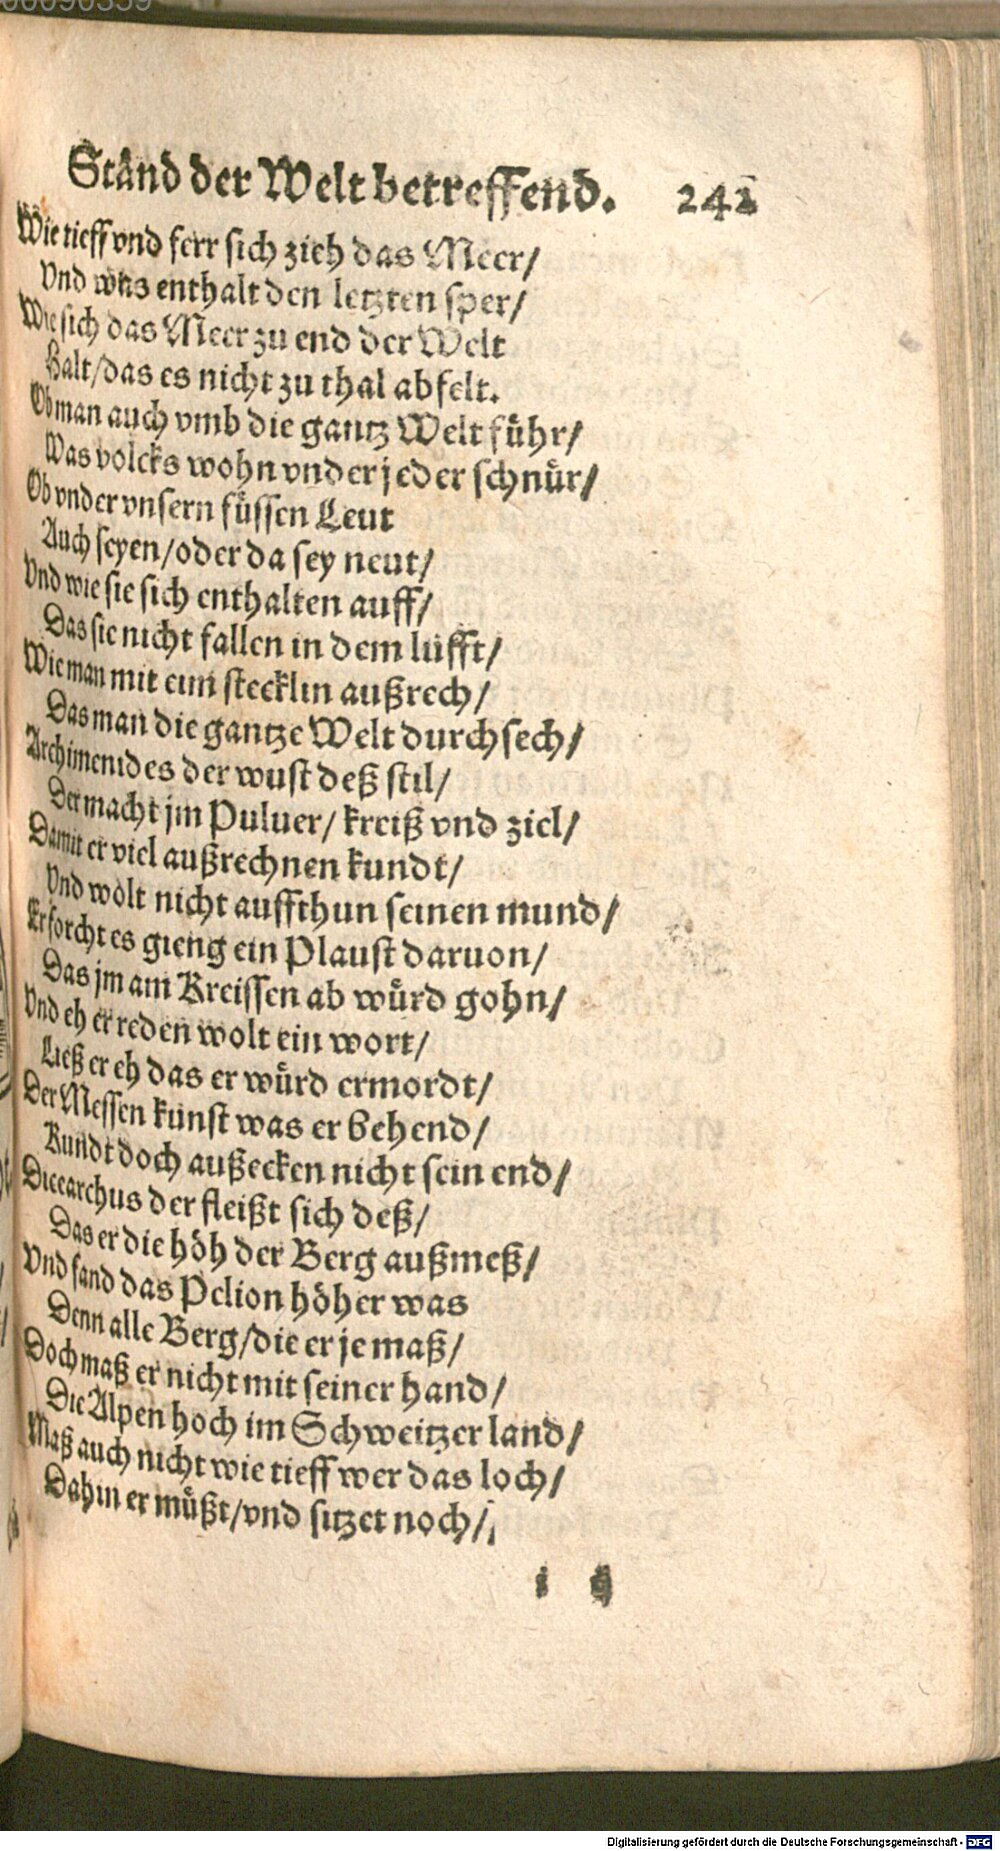 00090359
Ständ der Welt betreffend. 242
Wie tieff vnd ferr sich zieh das Meer/
Vnd was enthalt den letzten sper/
Wie sich das Meer zu end der Welt
Halt/das es nicht zu thal abfelt.
Ob man auch vmb die gantz Welt führ/
Was volcks wohn vnder jeder schnür/
Ob vnder vnsern füssen Leut
Auch seyen/oder da sey neut/
Vnd wie sie sich enthalten auff/
Das sie nicht fallen in dem lufft/
Wie man mit eim stecklin außrech/
Das man die gantze Welt durchsech/
Archimenides der wust deß stil/
Der macht jm Puluer/ kreiß vnd ziel/
Damit er viel außrechnen kundt/
Vnd wolt nicht auffthun seinen mund/
Er forcht es gieng ein Plaust daruon/
Das jm am Kreissen ab würd gohn/
Vnd eh er reden wolt ein wort/
Ließ er eh das er würd ermordt/
Der Messen kunst was er behend/
Kundt doch außecken nicht sein end/
Dicearchus der fleißt sich deß/
Das er die höh der Berg außmeß/
Vnd fand das Pelion höher was
Denn alle Berg/die er je maß/
Doch maß er nicht mit seiner hand/
Die Alpen hoch im Schweitzer land/
Maß auch nicht wie tieff wer das loch/
Dahin er müßt/vnd sitzet noch/
Digitalisierung gefördert durch die Deutsche Forschungsgemeinschaft - DFG